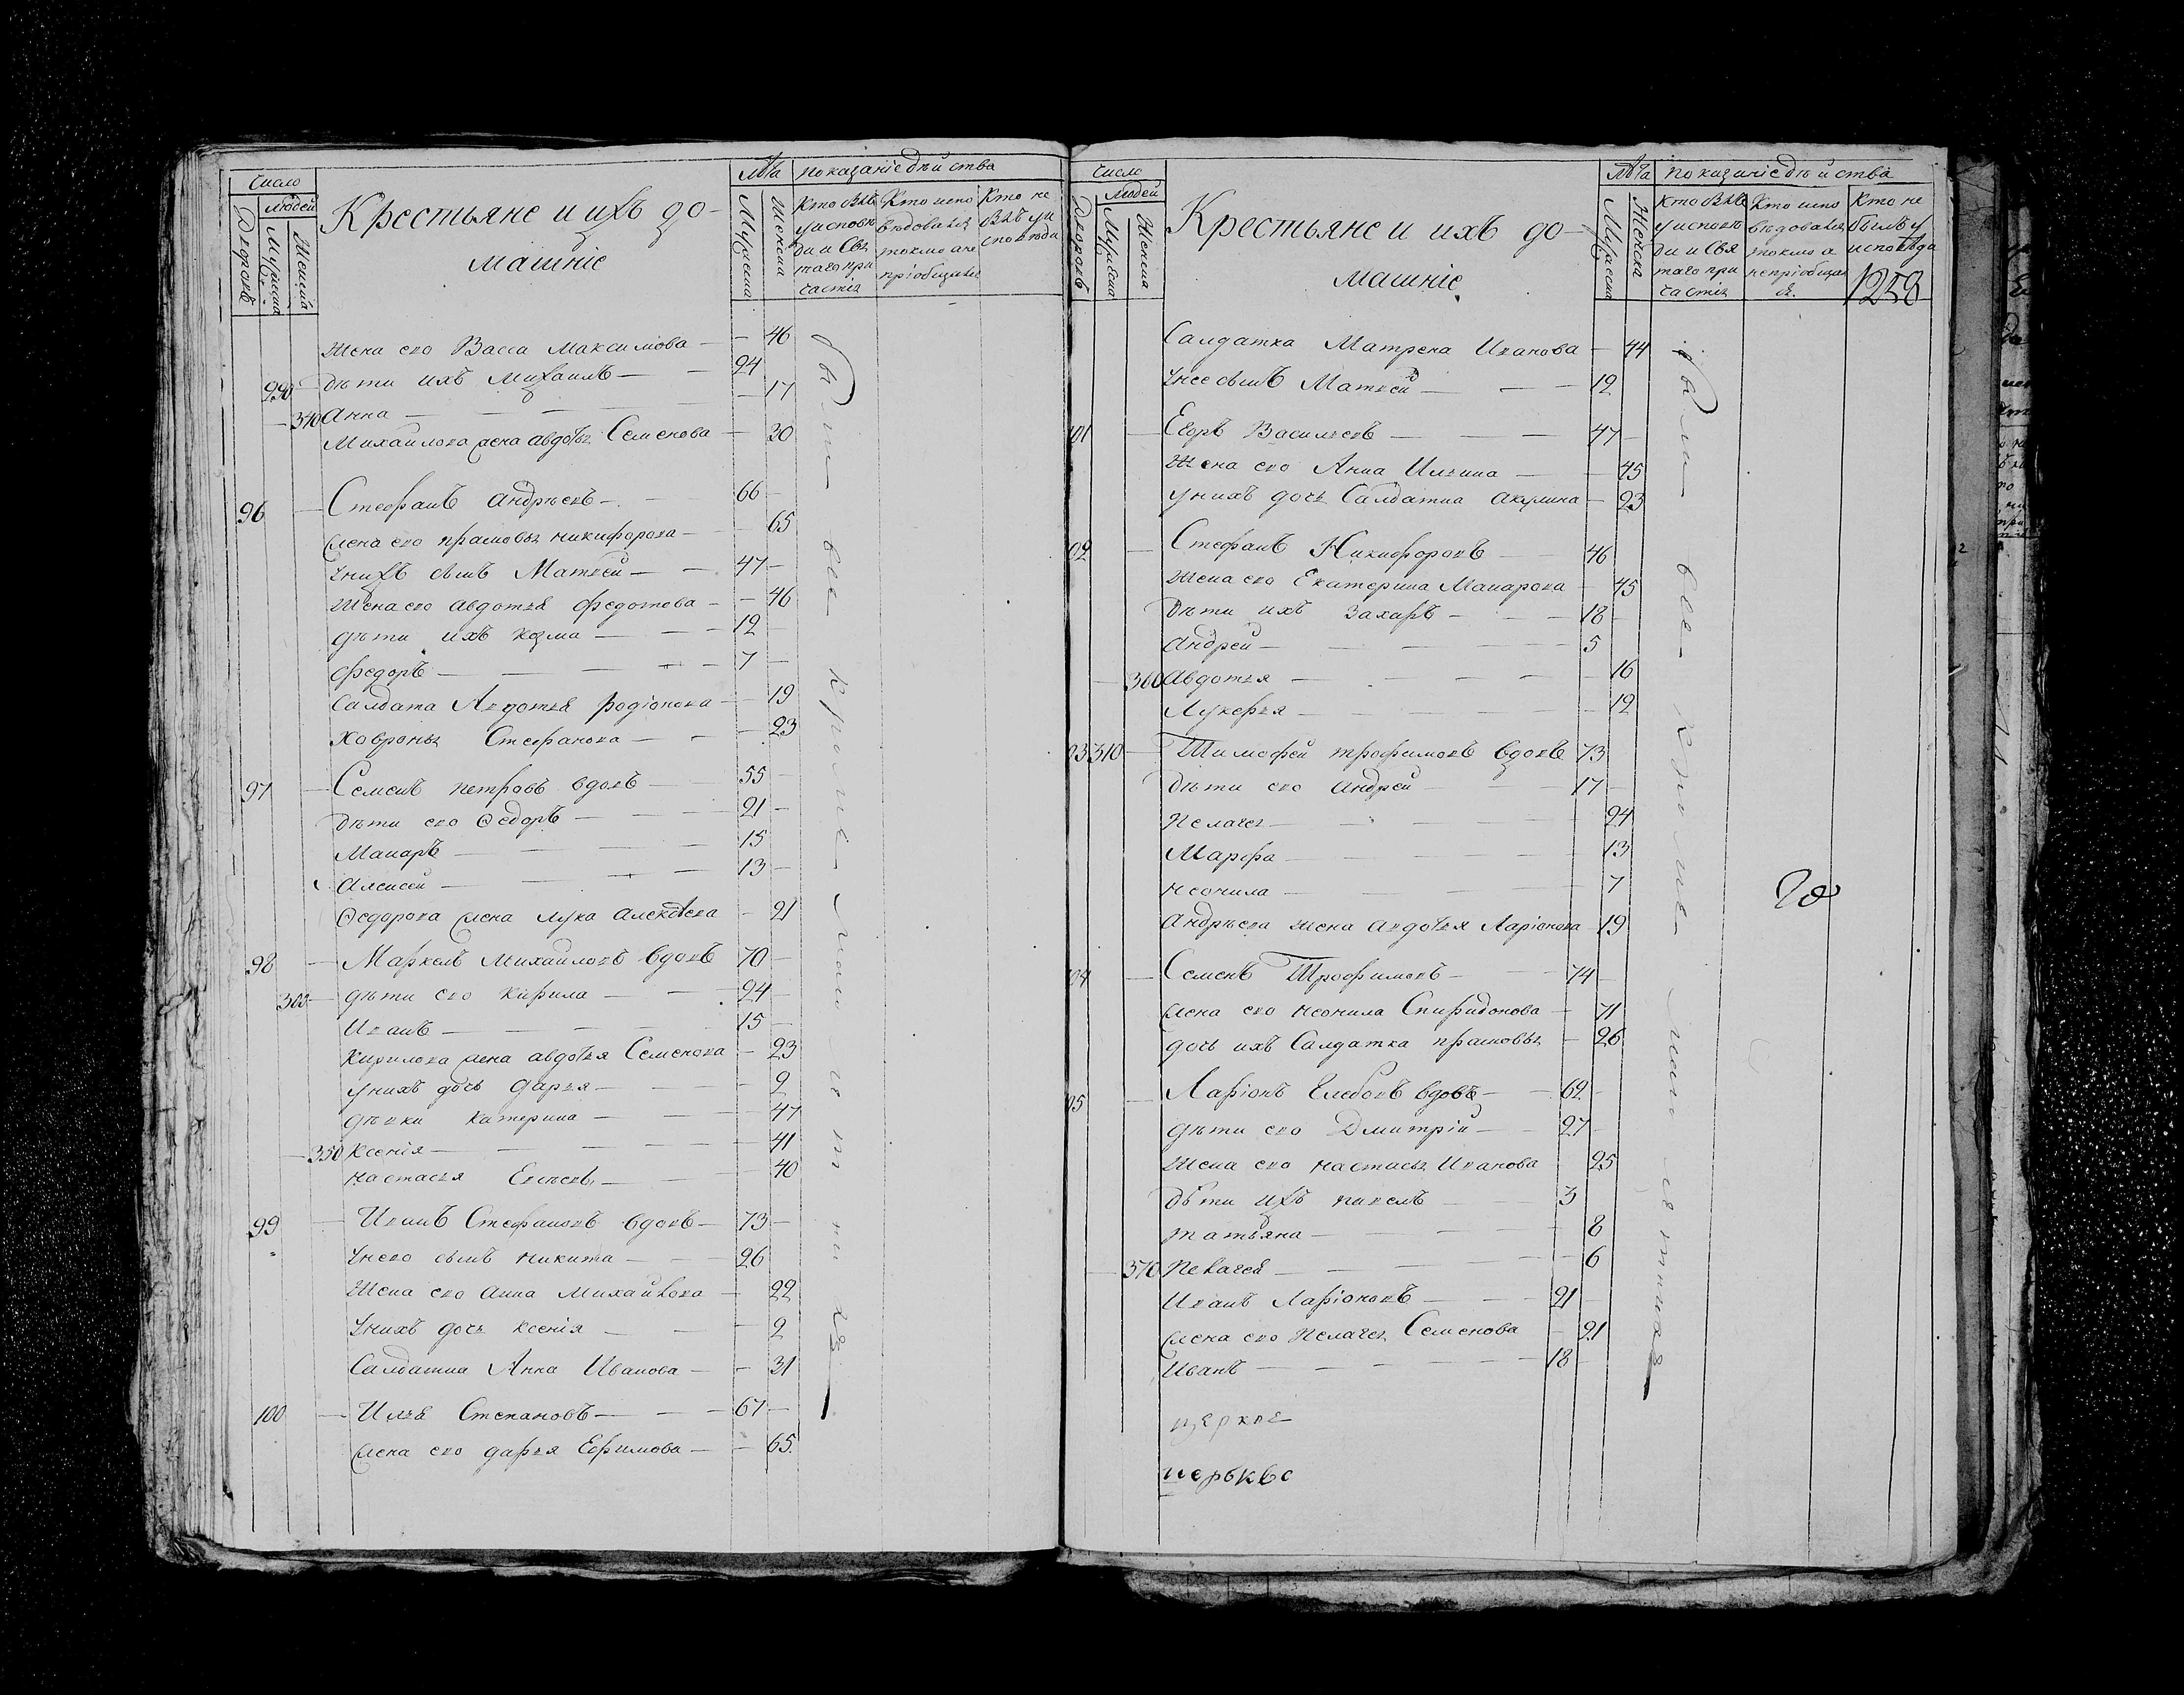 Число
Людей
Дворовъ
Мужеска
Женска
Крестьяне и ихъ до-
машніе
Лѣта
Мужеска
Женска
показаніе дѣйства
Кто былъ у исповѣди и Святаго причастія
Кто исповѣдовался токмо а не пріобщался
Кто не былъ у исповѣди
Жена его Васса Максимова — — 46
290 дѣти ихъ Михаилъ — — 24
340 Анна — — — 17
Михайлова жена авдотья Семенова — 20
96 — Стефанъ андрѣевъ — 66
жена его прасковья никифорова — 65
У нихъ сынъ Матвей — — 47 —
Жена его авдотья федотева — — 46
дѣти ихъ козма — — — 12
федоръ — — — 7 —
Салдатка Авдотья родіонова — 19
Ховронья Стефанова — — 23
97 — Семенъ петровъ вдовъ — 55
дѣти его Ѳедоръ — — 21 —
Макаръ — — — 15
Алексей — — — 13 —
Ѳедорова жена Лукья Алексѣева — 21
98 — Маркелъ михайловъ вдовъ 70 —
300 — дѣти его кирила — — 24
Иванъ — — — 15 —
Кирилова жена авдотья Семенова — 23
у нихъ дочь дарья — — 2
дѣвки катерина — — 47
350 Ксенія — — — 41
настасья — 40
99 — Иванъ Стефановъ вдовъ — 73 —
У него сынъ никита — — 26
Жена его анна михайлова — 22
У нихъ дочь ксенія — — 2
Салдатка Анна Иванова — — 31
100 — Илья Степановъ — — 67 —
жена его дарья Ефимова — — 65
были все кроме малолетних
Число
Людей
Дворовъ
Мужеска
Женска
Крестьяне и ихъ до-
машніе
Лѣта
Мужеска
Женска
показаніе дѣйства
Кто былъ у исповѣди и Святаго причастія
Кто исповѣдовался токмо а не пріобщался
Кто не былъ у исповѣди
1258
Салдатка Матрена Иванова — 44
У нее сынъ Матвей — — 12
01 — Егоръ Васильевъ — — — 47 —
Жена его Анна Ильина — — 45
у нихъ дочь Салдатка акулина — 23
02 — Стефанъ Никифоровъ — — 46
Жена его Екатерина Макарова — 45
Дѣти ихъ Захаръ — — — 18 —
Андрей — — — 5
360 авдотья — — — 16
Лукерья — — — 12
03 310 — Тимофей трофимовъ вдовъ 73
Дѣти его андрей — — 17 —
Пелагея — — — 24
Марфа — — — 13
неонила — — — 7
андрѣева жена авдотья Ларіонова 19
04 — Семенъ Трофимовъ — — 74 —
жена его неонила Спиридонова — 71
дочь ихъ Салдатка прасковья — 26
05 — Ларіонъ Глебовъ вдовъ — — 62 —
дѣти его Дмитрій — — 27 —
Жена его настасья Иванова 25
дѣти ихъ павелъ — — 3
татьяна — — — 8
370 Пелагея — — — 6
Иванъ Ларіоновъ — — 21 —
жена его пелагея Семенова — 21
Иванъ — — — 18 —
были все кроме малолетних
20
церкве
церькве